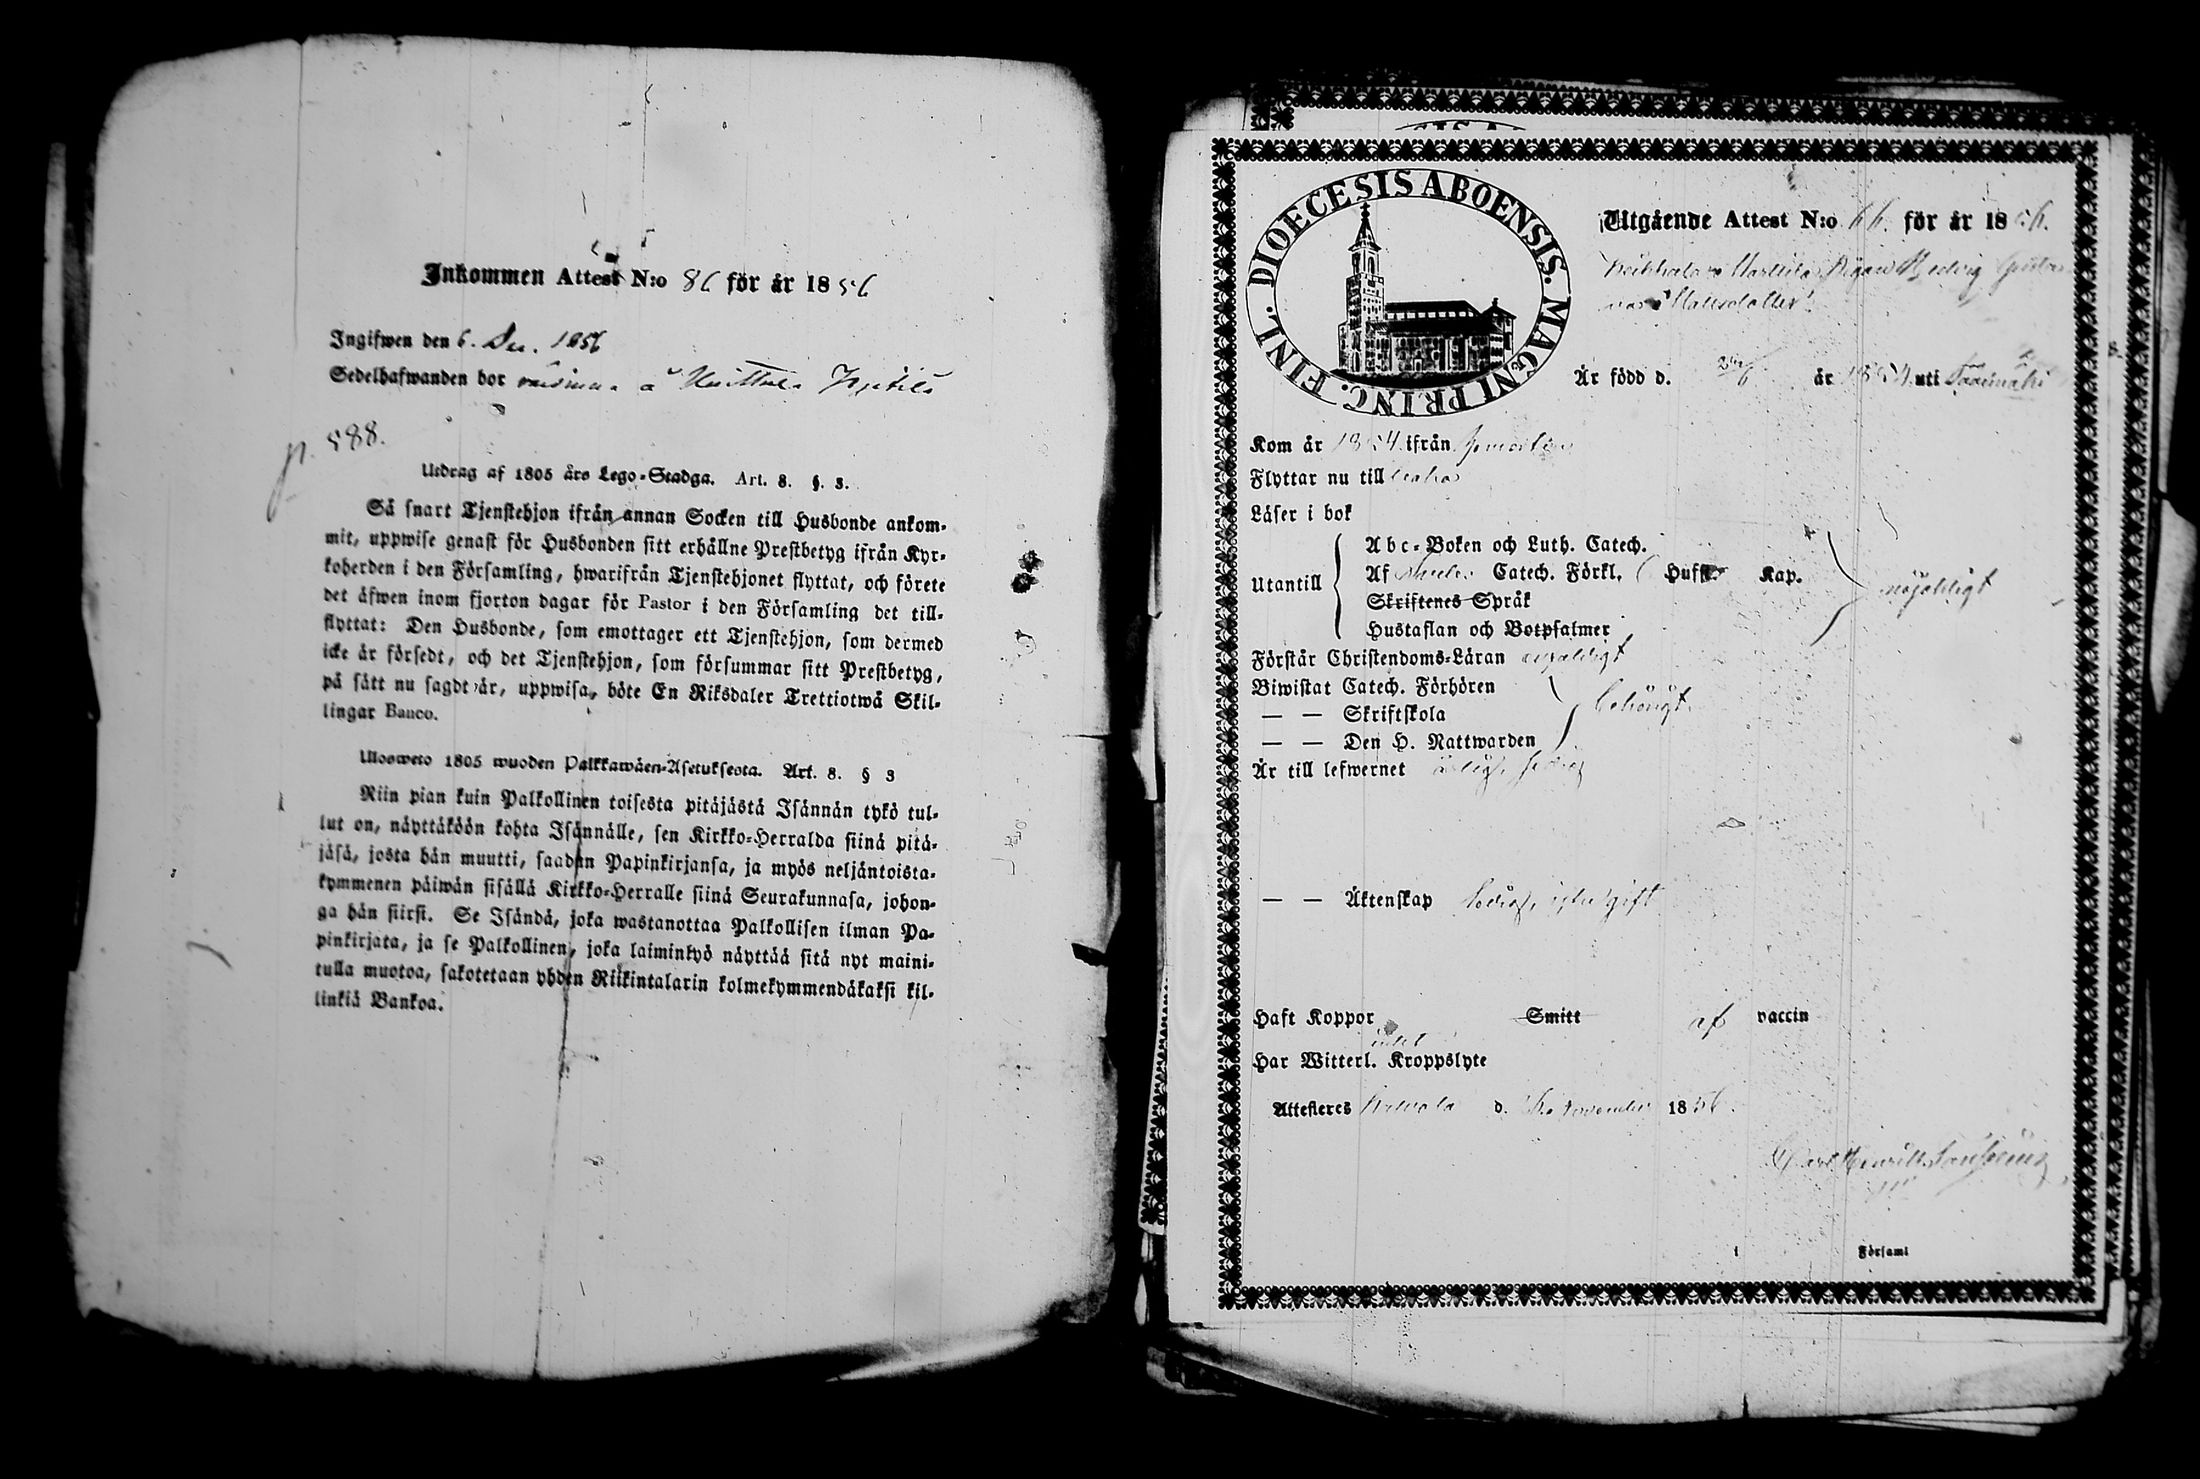 Inkommen Attest N:o 86 för år 1856
Ingifwen den 6. Dec. 1856
Sedelhafwanden bor å
p. 588.
Utdrag af 1805 års Lego-Stadga. Art. 8. §. 3.
Så snart Tjenstehjon ifrån annan Socken till Husbonde ankom-
mit, uppwise genast för Husbonden sitt erhållne Prestbetyg ifrån Kyr-
koherden i den Församling, hwarifrån Tjenstehjonet flyttat, och förete
det äfwen inom fjorton dagar för Pastor i den Församling det till-
flyttat: Den Husbonde, som emottager ett Tjenstehjon, som dermed
icke är försedt, och det Tjenstehjon, som försummar sitt Prestbetyg,
på sätt nu sagdt är, uppwisa, böte En Riksdaler Trettiotwå Skil-
lingar Banco.
Ulosweto 1805 wuoden Palkkawäen-Asetuksesta. Art. 8. § 3
Niin pian kuin Palkollinen toisesta pitäjästä Isännän tykö tul-
lut on, näyttäköön kohta Isännälle, sen Kirkko-Herralda siinä pitä-
jäsä, josta hän muutti, saadun Papinkirjansa, ja myös neljäntoista-
kymmenen päiwän sisällä Kirkko-Herralle siinä Seurakunnasa, johon-
ga hän siirsi. Se Isändä, joka wastanottaa Palkollisen ilman Pa-
pinkirjata, ja se Palkollinen, joka laiminlyö näyttää sitä nyt maini-
tulla muotoa, sakotetaan yhden Riikintalarin kolmekymmendäkaksi kil-
linkiä Bankoa.
DIOECESIS ABOENSIS. MAGNI PRINC. FINL.
Utgående Attest N:o 66. för år 1856.
Pigan Hedvig
Mattsdotter
Är född d. år 1834 uti
Kom år 1854 ifrån
Flyttar nu till
Läser i bok
Utantill
Abc-Boken och Luth. Catech.
Af Catech. Förkl. Husfl. Kap.
Skriftenes Språk
Hustaflan och Botpsalmer
nöjaktigt
Förstår Christendoms-Läran nöjaktigt
Biwistat Catech. Förhören
— — Skriftskola
— — Den H. Nattwarden
behörigt
Är till lefwernet
— — Äktenskap ledig, ogift
Haft Koppor Smitt af vaccin
Har Witterl. Kroppslyte intet
Attesteres d. November 1856.
Carl Henrik
i Församl